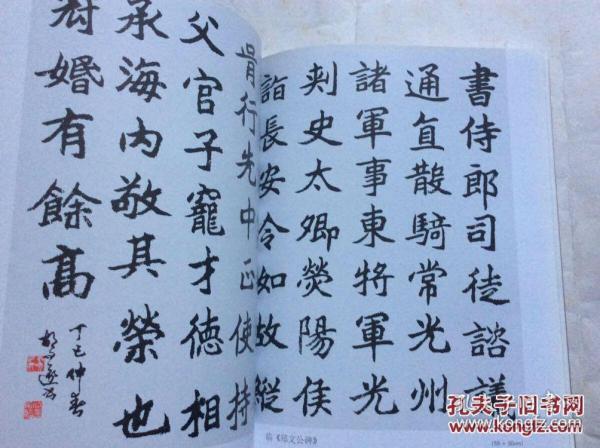 書侍郎司徒諮議
通直散騎常光州
諸軍事東將軍光
刺史太卿熒陽侯
詣長安令如故縱
临《郑文公碑》
肯行先中正使持
父官子寵才德相
承海内敬其榮也
對婚有餘高
丁巳仲春
孔夫子旧书网